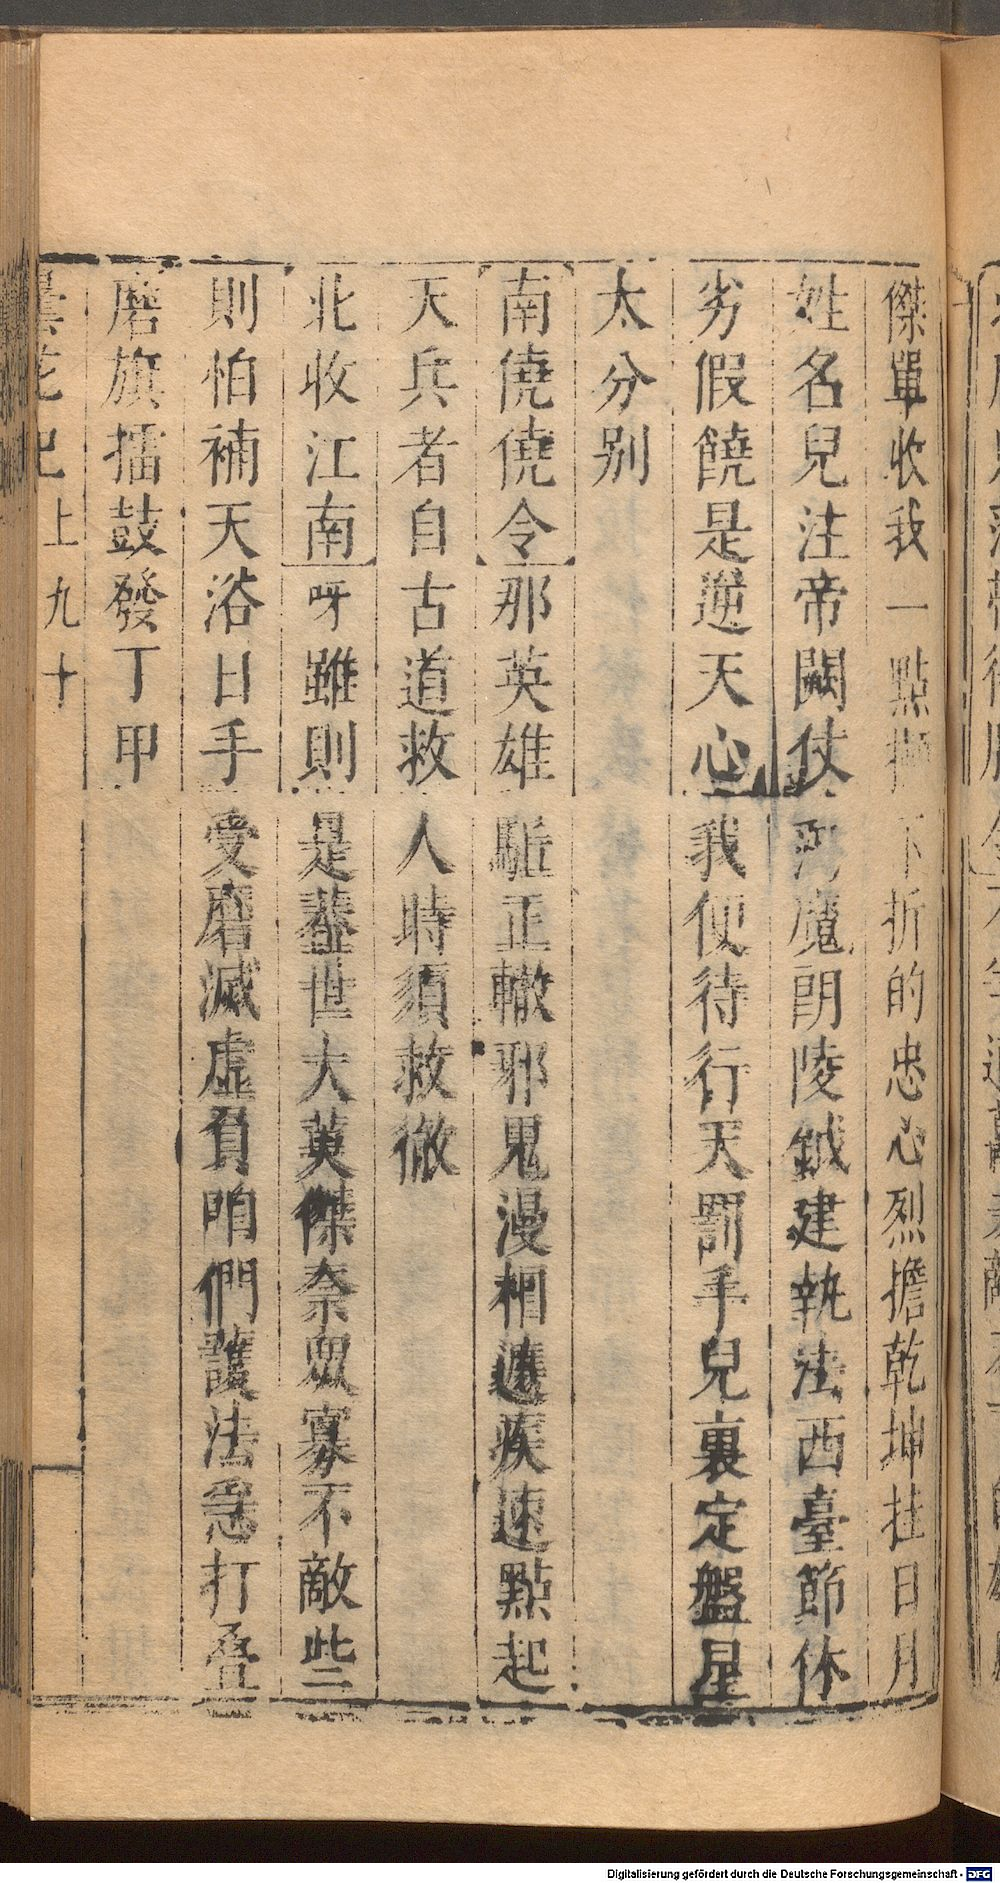 傑單收我一點擷下折的忠心烈擔乾坤挂日月
姓名兒注帝闕仗河魔朗陵鉞建執法西臺節休
劣假饒是逆天心我便待行行天罰手兒裏定盤星
太分别
南僥僥令那英雄駈正轍邪鬼漫相遶疾速點起
天兵者自古道救人時須救徹
北收江南呀雖則是蓋世大英傑奈眾寡不敵些
則怕補天浴日手受磨滅虛負咱們護法急打疊
磨旗擂鼓發丁甲
曇花記上九十
Digitalisierung gefördert durch die Deutsche Forschungsgemeinschaft - DFG